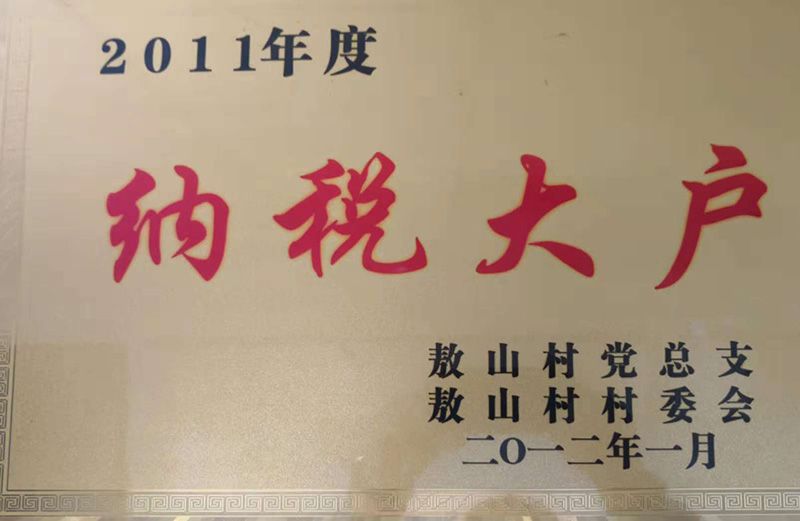 2011年度
纳税大户
敖山村党总支
敖山村村委会
二O一二年一月